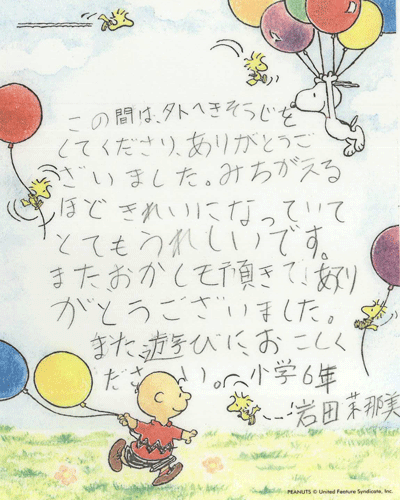 この間は、外へきそうじを
してくださり、ありがとうご
ざいました。みちがえる
ほどきれいになっていて
とてもうれしいです。
また、おかしも頂きて、あり
がとうございました。
また、遊びに、おこしく
ださいい。小学6年
岩田茉那美
PEANUTS © United Feature Syndicate, Inc.